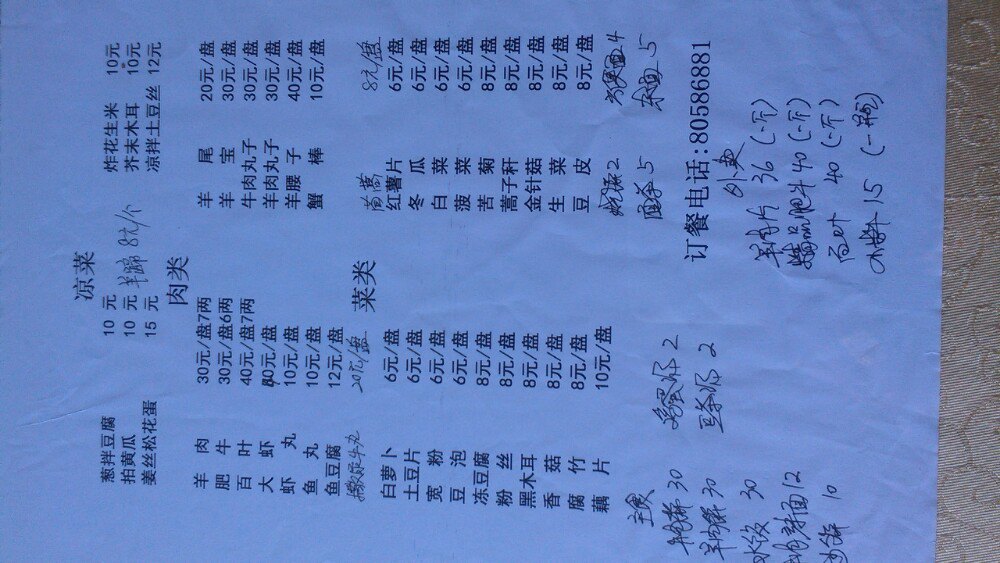 凉菜
葱拌豆腐 10 元 炸花生米 10元
拍黄瓜 10 元 羊蹄 8元/个 芥末木耳 10元
姜丝松花蛋 15 元 凉拌土豆丝 12元
肉类
羊肉 30元/盘7两 羊尾 20元/盘
肥牛 30元/盘6两 羊宝 30元/盘
百叶 40元/盘7两 牛肉丸子 30元/盘
大虾 40元/盘 羊肉丸子 30元/盘
虾丸 10元/盘 羊腰子 40元/盘
鱼丸 10元/盘 蟹棒 10元/盘
鱼豆腐 12元/盘
菜类
撒尿牛丸 20元/盘 茼蒿 8元/盘
白萝卜 6元/盘 红薯片 6元/盘
土豆片 6元/盘 冬瓜 6元/盘
宽粉 6元/盘 白菜 6元/盘
豆泡 6元/盘 菠菜 6元/盘
冻豆腐 8元/盘 苦菊 8元/盘
粉丝 8元/盘 蒿子秆 8元/盘
黑木耳 8元/盘 金针菇 8元/盘
香菇 8元/盘 生菜 8元/盘
腐竹 8元/盘 豆皮 8元/盘
藕片 10元/盘
烧饼 2 4
主食 5 5
牛肉饼 30 2
订餐电话:80586881
羊肉饼 30 2
外卖
水饺 30 羊肉片 36 (一斤)
12 精品肥牛 40 (一斤)
10 百叶 40 (一斤)
小料 15 (一瓶)